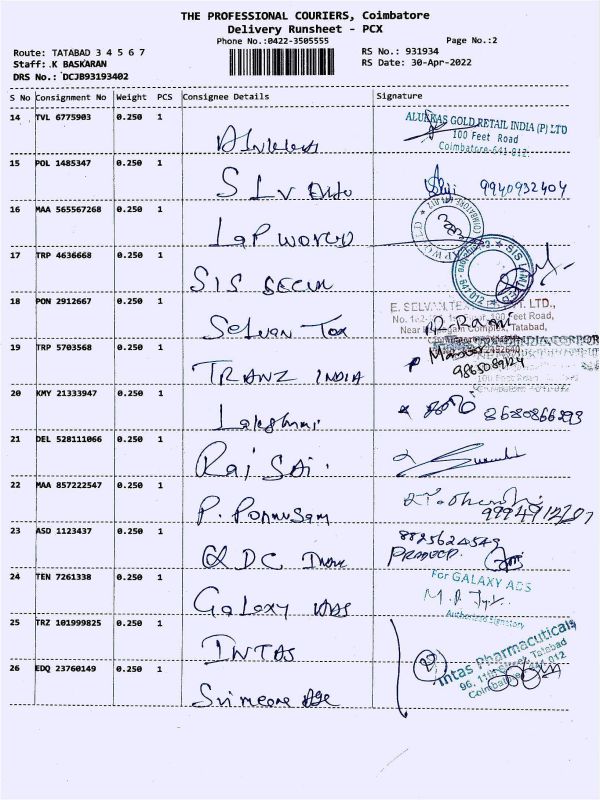 THE PROFESSIONAL COURIERS, Coimbatore
Delivery Runsheet - PCX
Phone No.:0422-3505555
Page No.:2
Route: TATABAD 3 4 5 6 7
Staff:.K BASKARAN
DRS No.: DCJB93193402
RS No.: 931934
RS Date: 30-Apr-2022
S No Consignment No Weight PCS Consignee Details Signature
14 TVL 6775903 0.250 1
ALUKKAS GOLD RETAIL INDIA (P) LTD
100 Feet Road
Coimbatore-641 012.
15 POL 1485347 0.250 1 SLV 9940932404
16 MAA 565567268 0.250 1 Lap world
17 TRP 4636668 0.250 1 SIS Secur
18 PON 2912667 0.250 1 Selvan Tex
E. SELVAN LTD.,
Feet Road,
Complex, Tatabad,
19 TRP 5703568 0.250 1 TRANZ INDIA
9865089124
20 KMY 21333947 0.250 1 Lakshmi 8680866293
21 DEL 528111066 0.250 1 Rai Sai
22 MAA 857222547 0.250 1 P. Ponnusam
23 ASD 1123437 0.250 1 QDC
8825624549
PRADEEP.
24 TEN 7261338 0.250 1 Galaxy Ads
For GALAXY ADS
Authorised Signatory
25 TRZ 101999825 0.250 1 INTAS
Intas Pharmaceuticals
Tatabad
26 EDQ 23760149 0.250 1